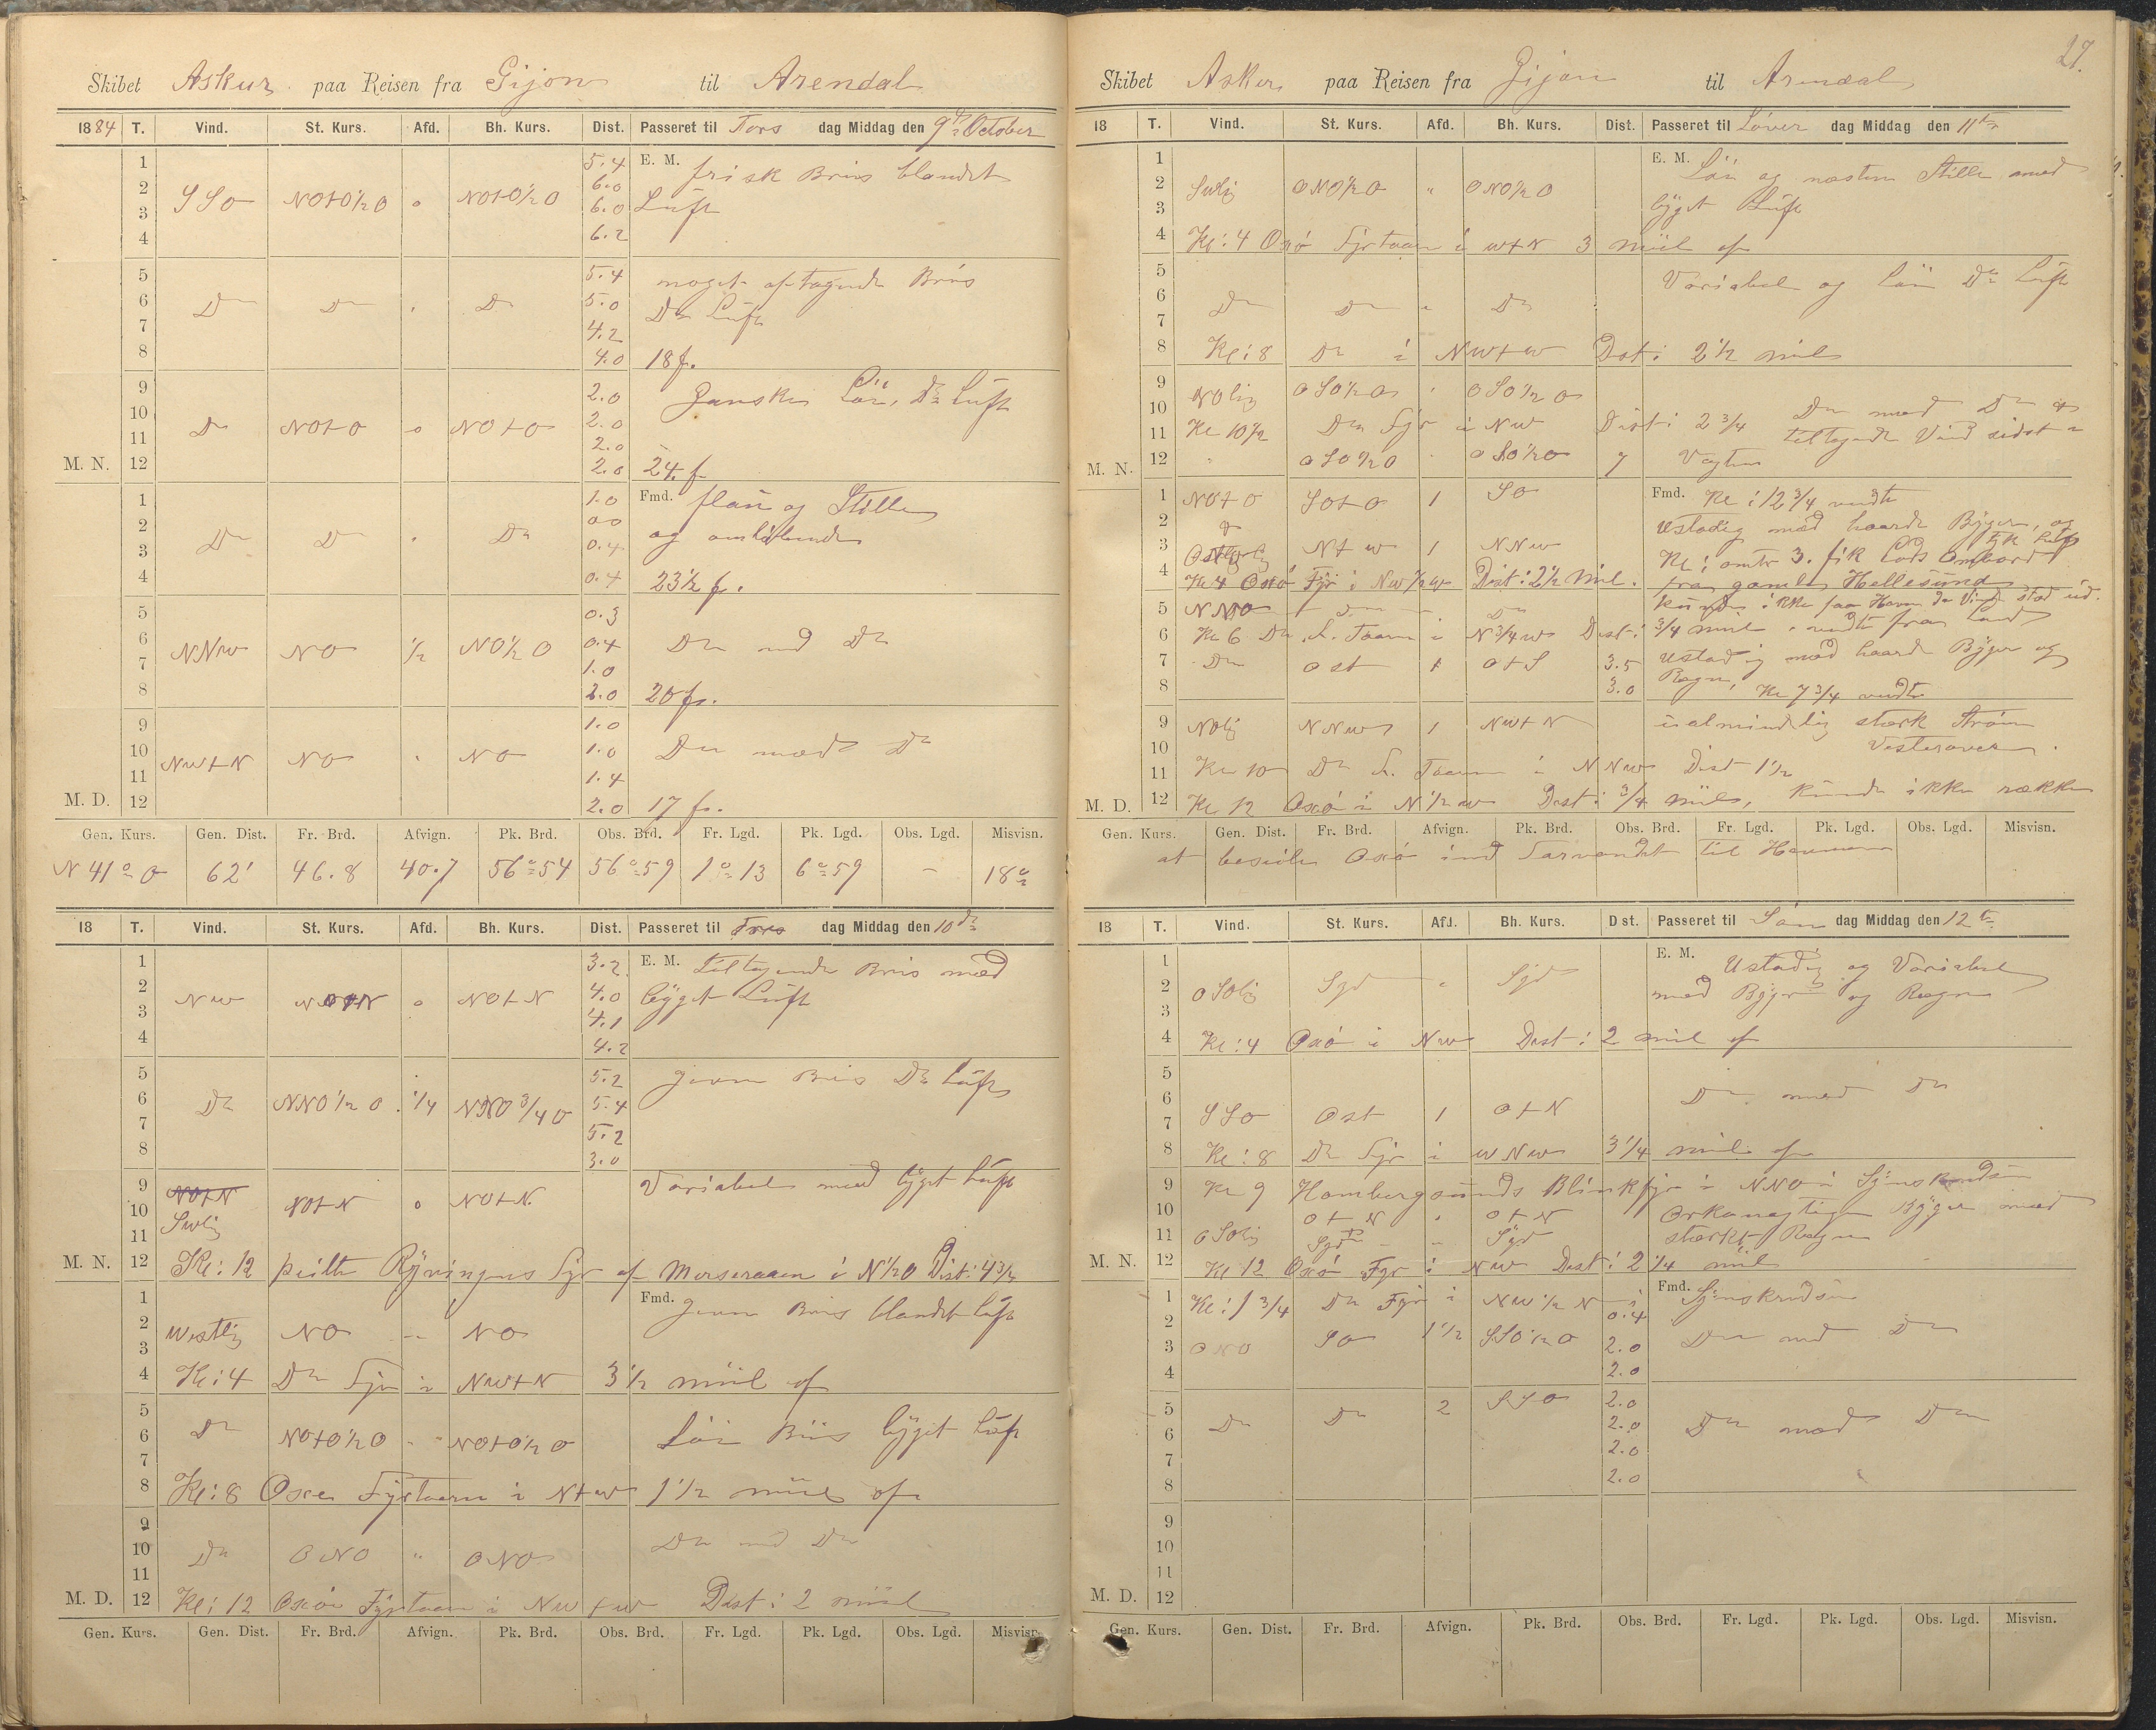 Skibet Askur paa Reisen fra Gijon til Arendal
1884 T. Vind. St. Kurs. Afd. Bh. Kurs. Dist. Passeret til Tors dag Middag den 9de October
1 5.4 E. M. frisk Bris blandet
2 SSO NOtO½O o NOtO½O 6.0 Luft
3 6.0
4 6.2
5 5.4 noget aftagende Bris
6 Do Do Do 5.0 Do Luft
7 4.2
8 4.0 18 f.
9 2.0 Ganske Löi, Do Luft
10 2.0
11 Do NOtO o NOtO 2.0
M. N. 12 2.0 24 f
1 1.0 Fmd. flau og Stille
2 Do Do Do 0.0 og omløbende
3 0.4
4 0.4 23½ f.
5 0.3
6 NNW NO ½ NO½O 0.4 Do med Do
7 1.0
8 2.0 20 f.
9 1.0
10 NWtN NO NO 1.0 Do med Do
11 1.4
M. D. 12 2.0 17 f.
Gen. Kurs. Gen. Dist. Fr. Brd. Afvign. Pk. Brd. Obs. Brd. Fr. Lgd. Pk. Lgd. Obs. Lgd. Misvisn.
N 41° O 62' 46.8 40.7 56°54 56°59 1°13 6°59 - 18°
18 T. Vind. St. Kurs. Afd. Bh. Kurs. Dist. Passeret til Fre dag Middag den 10de
1 3.2 E. M. tiltagende Bris med
2 NW NOtN o NOtN 4.0 bÿget Luft
3 4.1
4 4.2
5 5.2 jevn Bris Do Luft
6 Do NNO½O ¼ NNO¾O 5.4
7 5.2
8 3.0
9 NOtN Variabel med bÿget Luft
10 NOtN o NOtN
11 Swlig
M. N. 12 Kl: 12 peilte Rÿvingens Fyr af i N½O Dist: 4¾
1 Fmd. Jevn Bris blandet Luft
2 Westlig NO NO
3
4 Kl: 4 Do Fyr i NWtN 3½ miil af
5
6 Do NOtO½O NOtO½O Löi Bris bÿget Luft
7
8 Kl: 8 Oxø Fyrtaarn i NtW 1½ miil af
9
10 Do ONO ONO Do med Do
11
M. D. 12 Kl: 12 Oxø Fyrtaarn i NWtW Dist: 2 miil
Gen. Kurs. Gen. Dist. Fr. Brd. Afvign. Pk. Brd. Obs. Brd. Fr. Lgd. Pk. Lgd. Obs. Lgd. Misvisn.
27.
Skibet Askur paa Reisen fra Gijon til Arendal
18 T. Vind. St. Kurs. Afd. Bh. Kurs. Dist. Passeret til Löver dag Middag den 11te
1 E. M. Löi og næsten Stille med
2 Swlig ONO½O " ONO½O bÿget Luft
3
4 Kl: 4 Oxø Fyrtaarn i WtN 3 miil af
5 Variabel og Löi Do Luft
6 Do Do Do
7
8 Kl: 8 Do i NWtW Dist: 2½ miil
9 NOlig OSO½O OSO½O
10 Do med Do og
11 Kl 10½ Do Fyr i NW Dist: 2¾ tiltagende Vind sidst i
M. N. 12 OSO½O OSO½O 7 Vagten
1 NOtO SOtO 1 SO Fmd. Kl: 12¾ vendte
2 Ustadig med haarde Bÿger, og
3 Ostlig NtW 1 NNW Kl: omtr 3. fik Lods Ombord
4 Kl 4 Oxø Fyr i NW½W Dist: 2½ Miil. fra gamle Hellesund
5 NNO Do Do kunde ikke faa Havn da Vind stod ud.
6 Kl 6 Do F. Taarn i N¾W Dist: ¾ miil vendte fra Land
7 Do Ost 1 OtS 3.5 Ustadig med haarde Bÿger og
8 3.0 Regn, Kl 7¾ vendte
9 NOlig NNW 1 NWtN ualmindelig stærk Strøm
10 Vesterover.
11 Kl 10 Do F. Taarn i NNW Dist 1½
M. D. 12 Kl 12 Oxø i N½W Dist: ¾ miil, kunde ikke række
Gen. Kurs. Gen. Dist. Fr. Brd. Afvign. Pk. Brd. Obs. Brd. Fr. Lgd. Pk. Lgd. Obs. Lgd. Misvisn.
at Oxø ind til Havnen
18 T. Vind. St. Kurs. Afd. Bh. Kurs. Dist. Passeret til Sön dag Middag den 12te
1 E. M. Ustadig og Variabel
2 OSOlig Syd Syd med Bÿger og Regn
3
4 Kl: 4 Oxø i NW Dist: 2 miil af
5
6 Do med Do
7 SSO Ost 1 OtN
8 Kl: 8 Do Fyr i WNW 3¼ miil af
9 Kl 9 Homborgsunds Blinkfyr i NNO i
10 OtN OtN Orkanagtige Bÿger med
11 OSOlig Syd Syd stærkt Regn
M. N. 12 Kl 12 Oxø Fyr i NW Dist: 2¼ miil
1 Kl: 1¾ Do Fyr i NW½N i Fmd.
2 0.4
3 ONO SO 1½ SSO½O 2.0 Do med Do
4 2.0
5 Do Do 2 SSO 2.0
6 2.0 Do med Do
7 2.0
8 2.0
9
10
11
M. D. 12
Gen. Kurs. Gen. Dist. Fr. Brd. Afvign. Pk. Brd. Obs. Brd. Fr. Lgd. Pk. Lgd. Obs. Lgd. Misvisn.